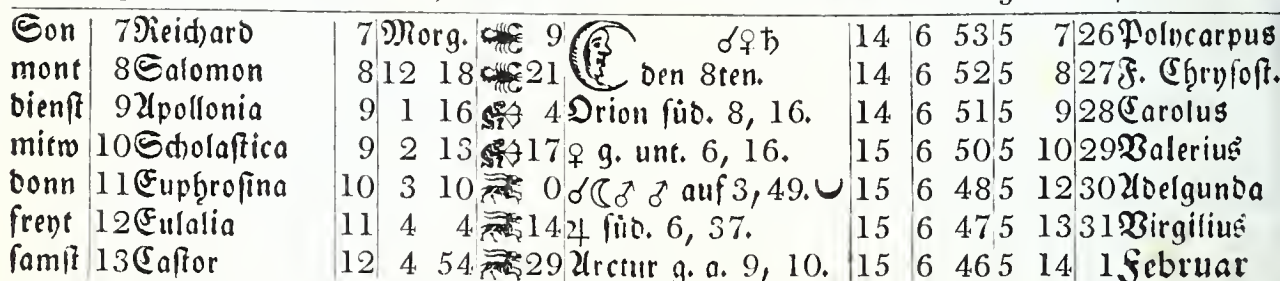 Son 7 Reichard 7 Morg. 9 ☌♀♄ 14 6 53 5 7 26 Polycarpus
mont 8 Salomon 8 12 18 21 den 8ten. 14 6 52 5 8 27 F. Chrysost.
dienst 9 Apollonia 9 1 16 4 Orion süd. 8, 16. 14 6 51 5 9 28 Carolus
mitw 10 Scholastica 9 2 13 17 ♀ g. unt. 6, 16. 15 6 50 5 10 29 Valerius
donn 11 Euphrosina 10 3 10 0 ☌☾♂ ♂ auf 3, 49. 15 6 48 5 12 30 Adelgunda
freyt 12 Eulalia 11 4 4 14 ♃ süd. 6, 37. 15 6 47 5 13 31 Virgilius
samst 13 Castor 12 4 54 29 Arctur g. a. 9, 10. 15 6 46 5 14 1 Februar